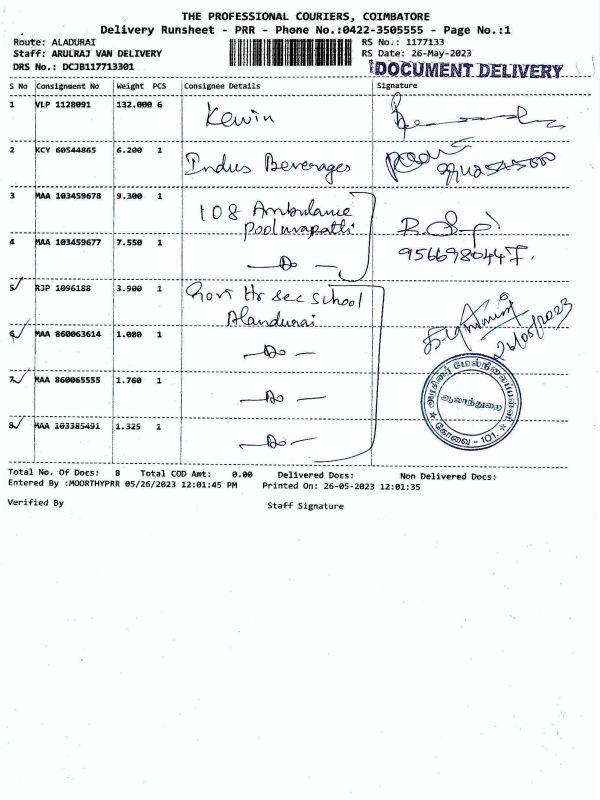 THE PROFESSIONAL COURIERS, COIMBATORE
Delivery Runsheet - PRR - Phone No.:0422-3505555 - Page No.:1
Route: ALADURAI RS No.: 1177133
Staff: ARULRAJ VAN DELIVERY RS Date: 26-May-2023
DRS No.: DCJB117713301 DOCUMENT DELIVERY
S No Consignment No Weight PCS Consignee Details Signature
1 VLP 1128091 132.000 6 Kewin
2 KCY 60544865 6.200 1 Indus Beverages
3 MAA 103459678 9.300 1 108 Ambulance
Pooluvapatti
4 MAA 103459677 7.550 1 - Do - 9566980447
5 RJP 1096188 3.900 1 Govt Hr sec school
Alandurai
26/05/2023
6 MAA 860063614 1.080 1 - Do -
7 MAA 860065555 1.760 1 - Do -
8 MAA 103385491 1.325 1 - Do -
அரசினர் மேல்நிலைப்பள்ளி
ஆலாந்துறை
கோவை - 101.
Total No. Of Docs: 8 Total COD Amt: 0.00 Delivered Docs: Non Delivered Docs:
Entered By :MOORTHYPRR 05/26/2023 12:01:45 PM Printed On: 26-05-2023 12:01:35
Verified By Staff Signature